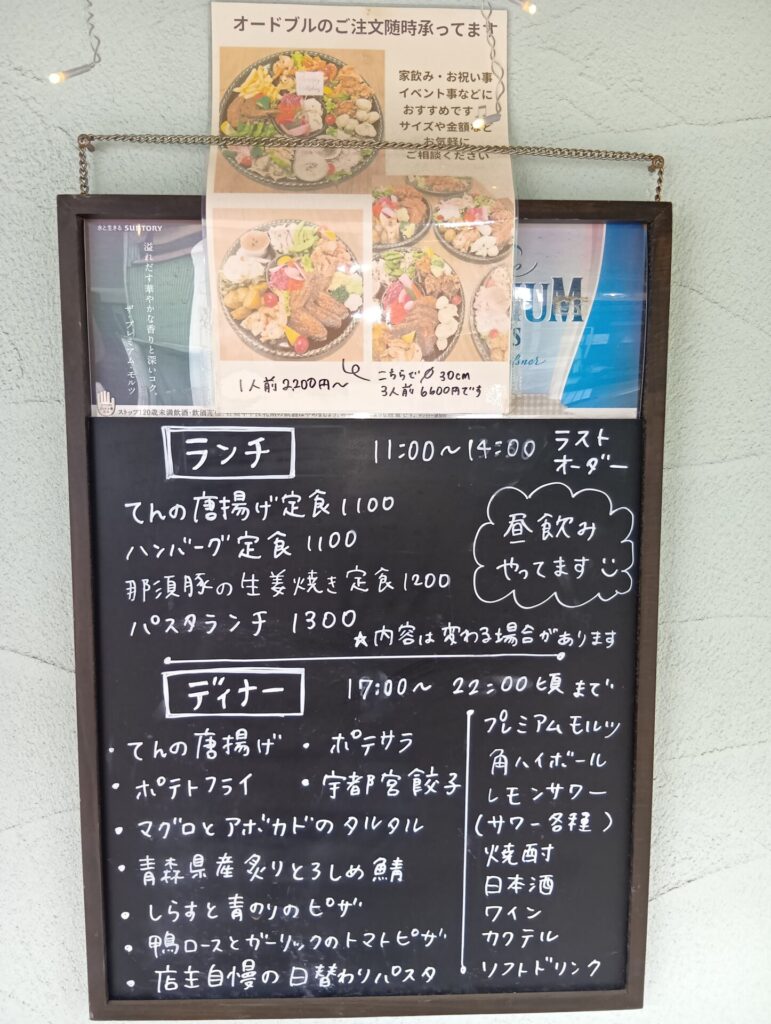 オードブルのご注文随時承ってます
家飲み・お祝い事
イベント事などに
おすすめです♫
サイズや金額など
お気軽に
ご相談ください
水と生きる SUNTORY
溢れだす華やかな香りと深いコク。
ザ・プレミアム・モルツ
1人前2200円〜
こちらで⌀30cm
3人前6600円です
ストップ!20歳未満飲酒・飲酒運転
ランチ 11:00〜14:00 ラスト
オーダー
てんの唐揚げ定食1100
ハンバーグ定食 1100
那須豚の生姜焼き定食1200
パスタランチ 1300
昼飲み
やってます
☆内容は変わる場合があります
ディナー 17:00〜 22:00頃まで
・てんの唐揚げ ・ポテサラ
・ポテトフライ ・宇都宮餃子
・マグロとアボカドのタルタル
・青森県産炙りとろしめ鯖
・しらすと青のりのピザ
・鴨ロースとガーリックのトマトピザ
・店主自慢の日替わりパスタ
プレミアムモルツ
角ハイボール
レモンサワー
(サワー各種)
焼酎
日本酒
ワイン
カクテル
ソフトドリンク